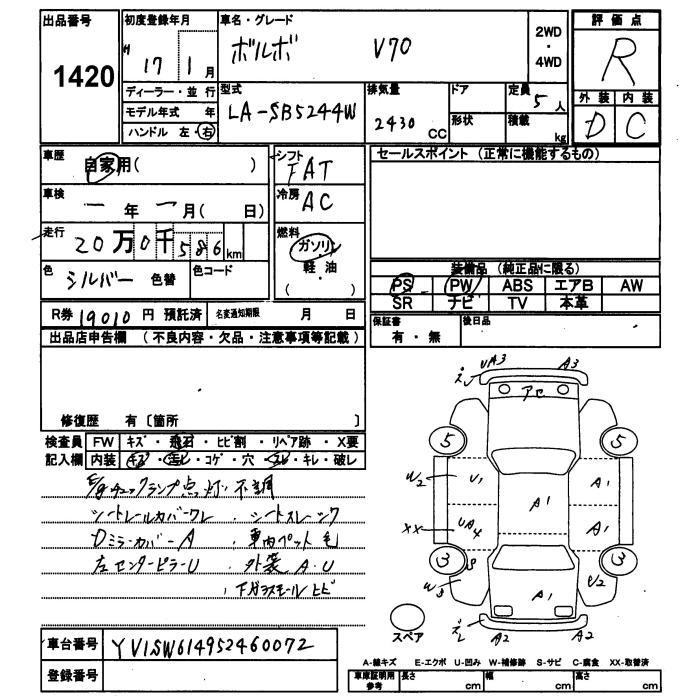 出品番号
1420
初度登録年月
H 17 1月
車名・グレード
ボルボ V70
2WD
・
4WD
評価点
R
外装 内装
D C
ディーラー・並行
モデル年式 年
ハンドル 左・右
型式
LA-SB5244W
排気量
2430 CC
ドア
形状
定員
5人
積載
kg
車歴
自家用( )
シフト
FAT
車検
一年一月( 日)
冷房
AC
走行
20万0千586km
燃料
ガソリン
軽・油
( )
色
シルバー 色替
色コード
R券 19010円 預託済
名変通知期限 月 日
セールスポイント (正常に機能するもの)
装備品 (純正品に限る)
PS PW ABS エアB AW
SR ナビ TV 本革
保証書
有・無
後日品
出品店申告欄 (不良内容・欠品・注意事項等記載)
修復歴 有〔箇所 〕
検査員
記入欄
FW キズ・飛石・ヒビ割・リペア跡・X要
内装 キズ・汚レ・コゲ・穴・スレ・キレ・破レ
E/gチェックランプ点灯 不調
シートレールカバーワレ . シートスレ.シワ
Dミラーカバー A . 車内ペット毛
左センターピラーU . 外装 A.U
. 下ガラスモール ヒビ
車台番号 YV1SW614952460072
登録番号
UA3 A3
アセ
5 5
W2 U1 A1 A1
XX UA4 A1
3 S 3
W3 A1 U2
A2 A2
スペア
A-線キズ E-エクボ U-凹み W-補修跡 S-サビ C-腐食 XX-取替済
車庫証明用
参考
長さ cm 幅 cm 高さ cm